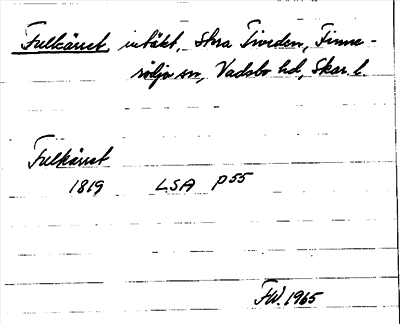 Fulkärret, intäkt, Stora Tiveden, Finne-
rödja sn, Vadsbo hd, Skar. l.
Fulkärret
1819 LSA P 55
FW. 1965